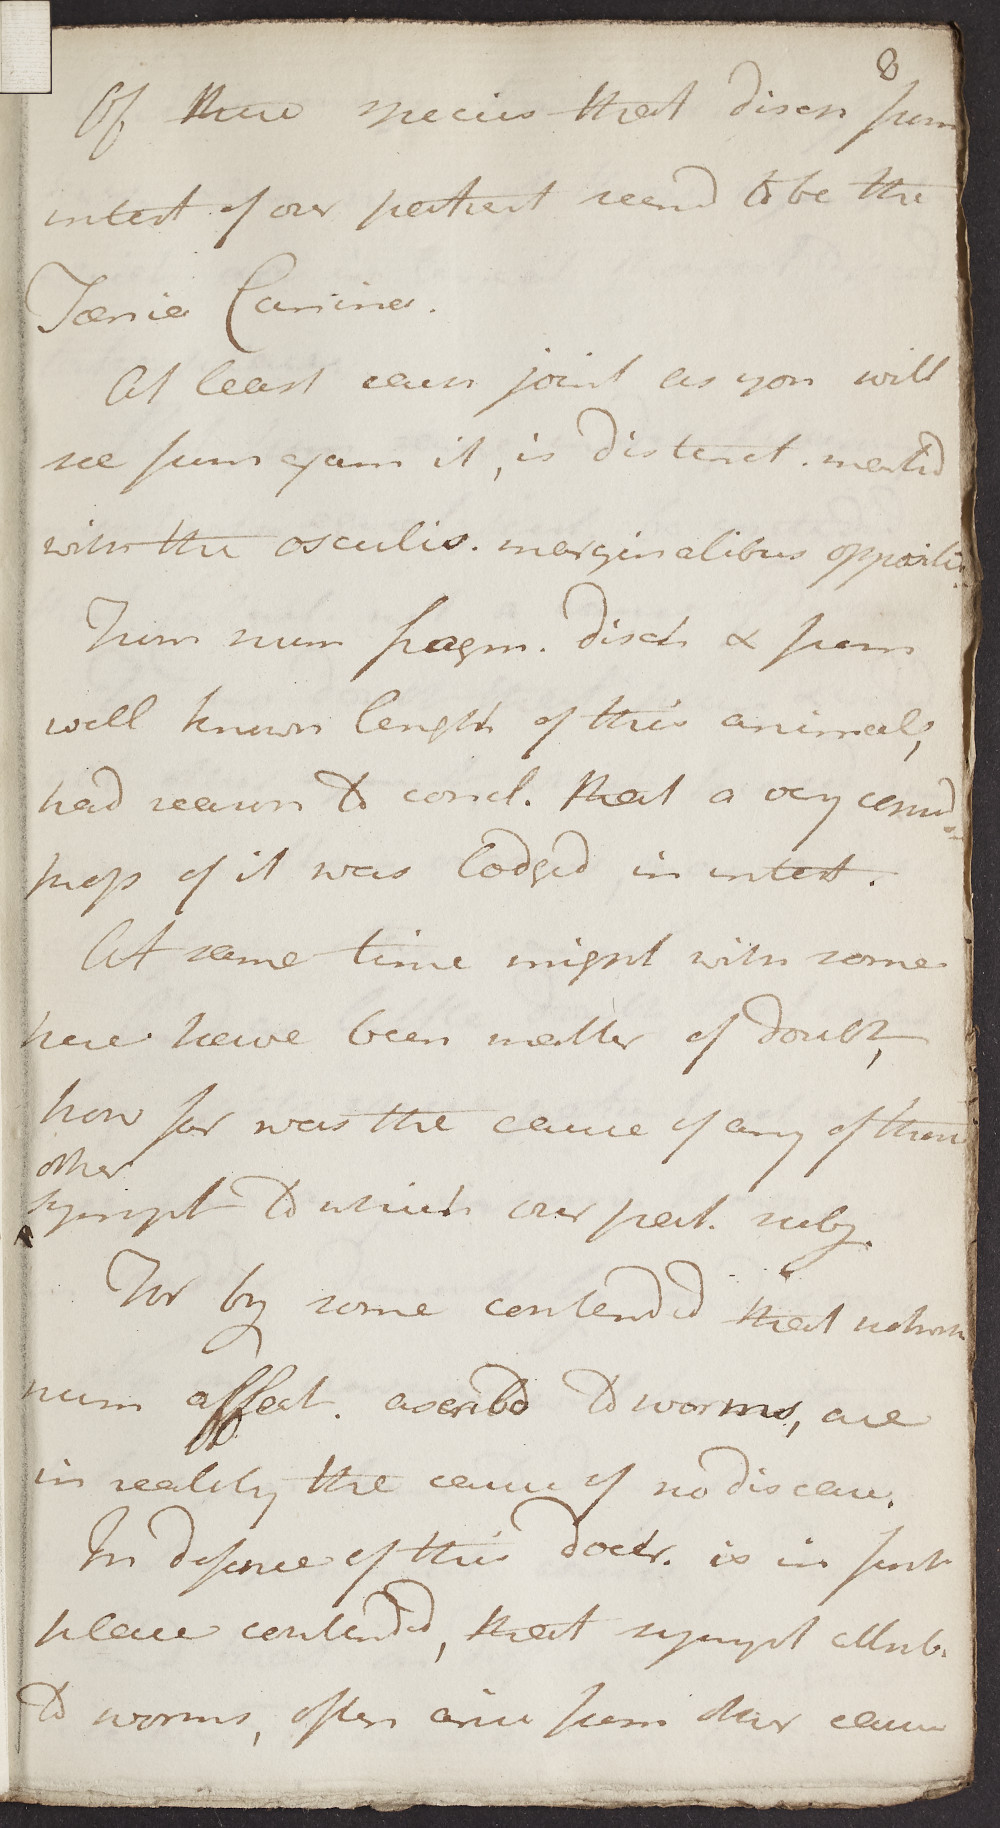 8
Of these species that disch from
intest of our patient seemd to be the
Tænia Canina.
At least each joint as you will
see from exam it, is distinct. markd
with the osculis. marginalibus oppositis.
From num fragm. disch & from
well known length of this animal,
had reason to concl. that a very consid
prop of it was lodged in intest.
At same time might with some
here have been matter of doubt,
how far was the cause of any of those
other
sympt to which our pat. subj.
For by some contended that
num affect. ascribd to worms, are
in reality the cause of no disease.
In defence of this doctr. is in first
place contended, that sympt attrib.
to worms, often arise from other cause